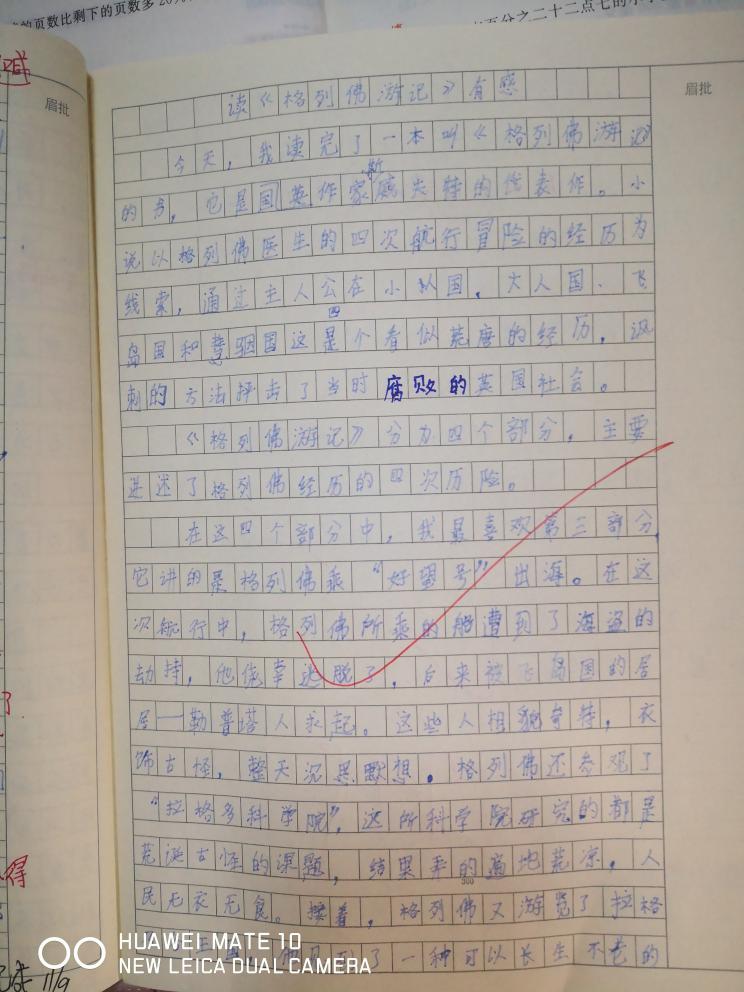 的页数比剩下的页数多20
百分之二十二点七的
眉批
眉批
读《格列佛游记》有感
今天，我读完了一本叫《格列佛游记》
斯
的书，它是国英作家威夫特的代表作。小
说以格列佛医生的四次航行冒险的经历为
线索，通过主人公在小人国、大人国、飞
四
岛国和慧骃国这是个看似荒唐的经历，讽
刺的方法抨击了当时腐败的英国社会。
《格列佛游记》分为四个部分，主要
讲述了格列佛经历的四次历险。
在这四个部分中，我最喜欢第三部分，
它讲的是格列佛乘“好望号”出海。在这
次航行中，格列佛所乘的船遭到了海盗的
劫持，他侥幸逃脱了，后来被飞岛国的居
居——勒普塔人救起。这些人相貌奇特，衣
饰古怪，整天沉思默想。格列佛还参观了
“拉格多科学院”，这所科学院研究的都是
荒诞古怪的课题，结果弄的遍地荒凉，人
300
民无衣无食。接着，格列佛又游览了拉格
了一种可以长生不老的
得
HUAWEI MATE 10
NEW LEICA DUAL CAMERA
11/9